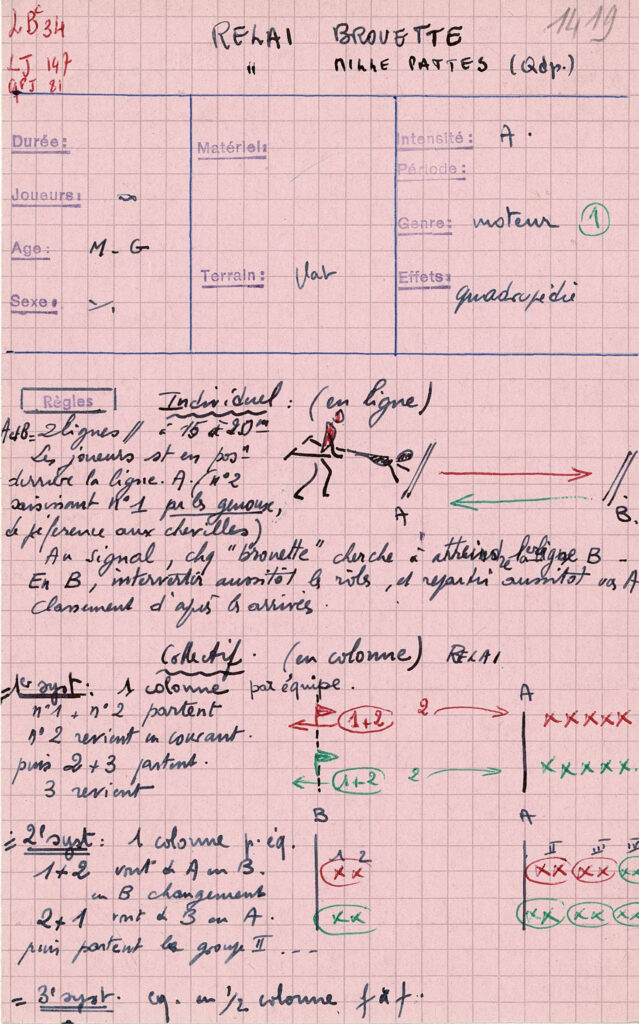 1419
LBé 34
LJ 147
QPJ 21
RELAI BROUETTE
" MILLE PATTES (Qdp.)
Durée:
Joueurs: ∞
Age: M - G
Sexe:
Matériel:
Terrain: Plat
Intensité: A.
Période:
Genre: moteur 1
Effets: quadrupédie
Règles
Individuel: (en ligne)
A et B = 2 lignes // à 15 à 20m
Les joueurs st en posn
derrière la ligne. A. (n°2
saisissant n°1 par les genoux,
de préférence aux chevilles)
A
B.
Au signal, chq "brouette" cherche à atteindre la ligne B -
En B, intervertir aussitôt les rôles, et repartir aussitôt vers A
Classement d'après les arrivés.
Collectif. (en colonne) RELAI
= 1er syst: 1 colonne par équipe.
n°1 + n°2 partent
n°2 revient en courant.
puis 2+3 partent.
3 revient
A
1+2 2 x x x x x
1+2 2 x x x x x
B A
= 2e syst: 1 colonne p. éq.
1+2 vont de A en B.
en B changement
2+1 vont de B en A.
puis partent le groupe II ----
1 2
x x
x x
II III IV
x x x x x
x x x x x
= 3e syst. eq. en 1/2 colonne f à f.